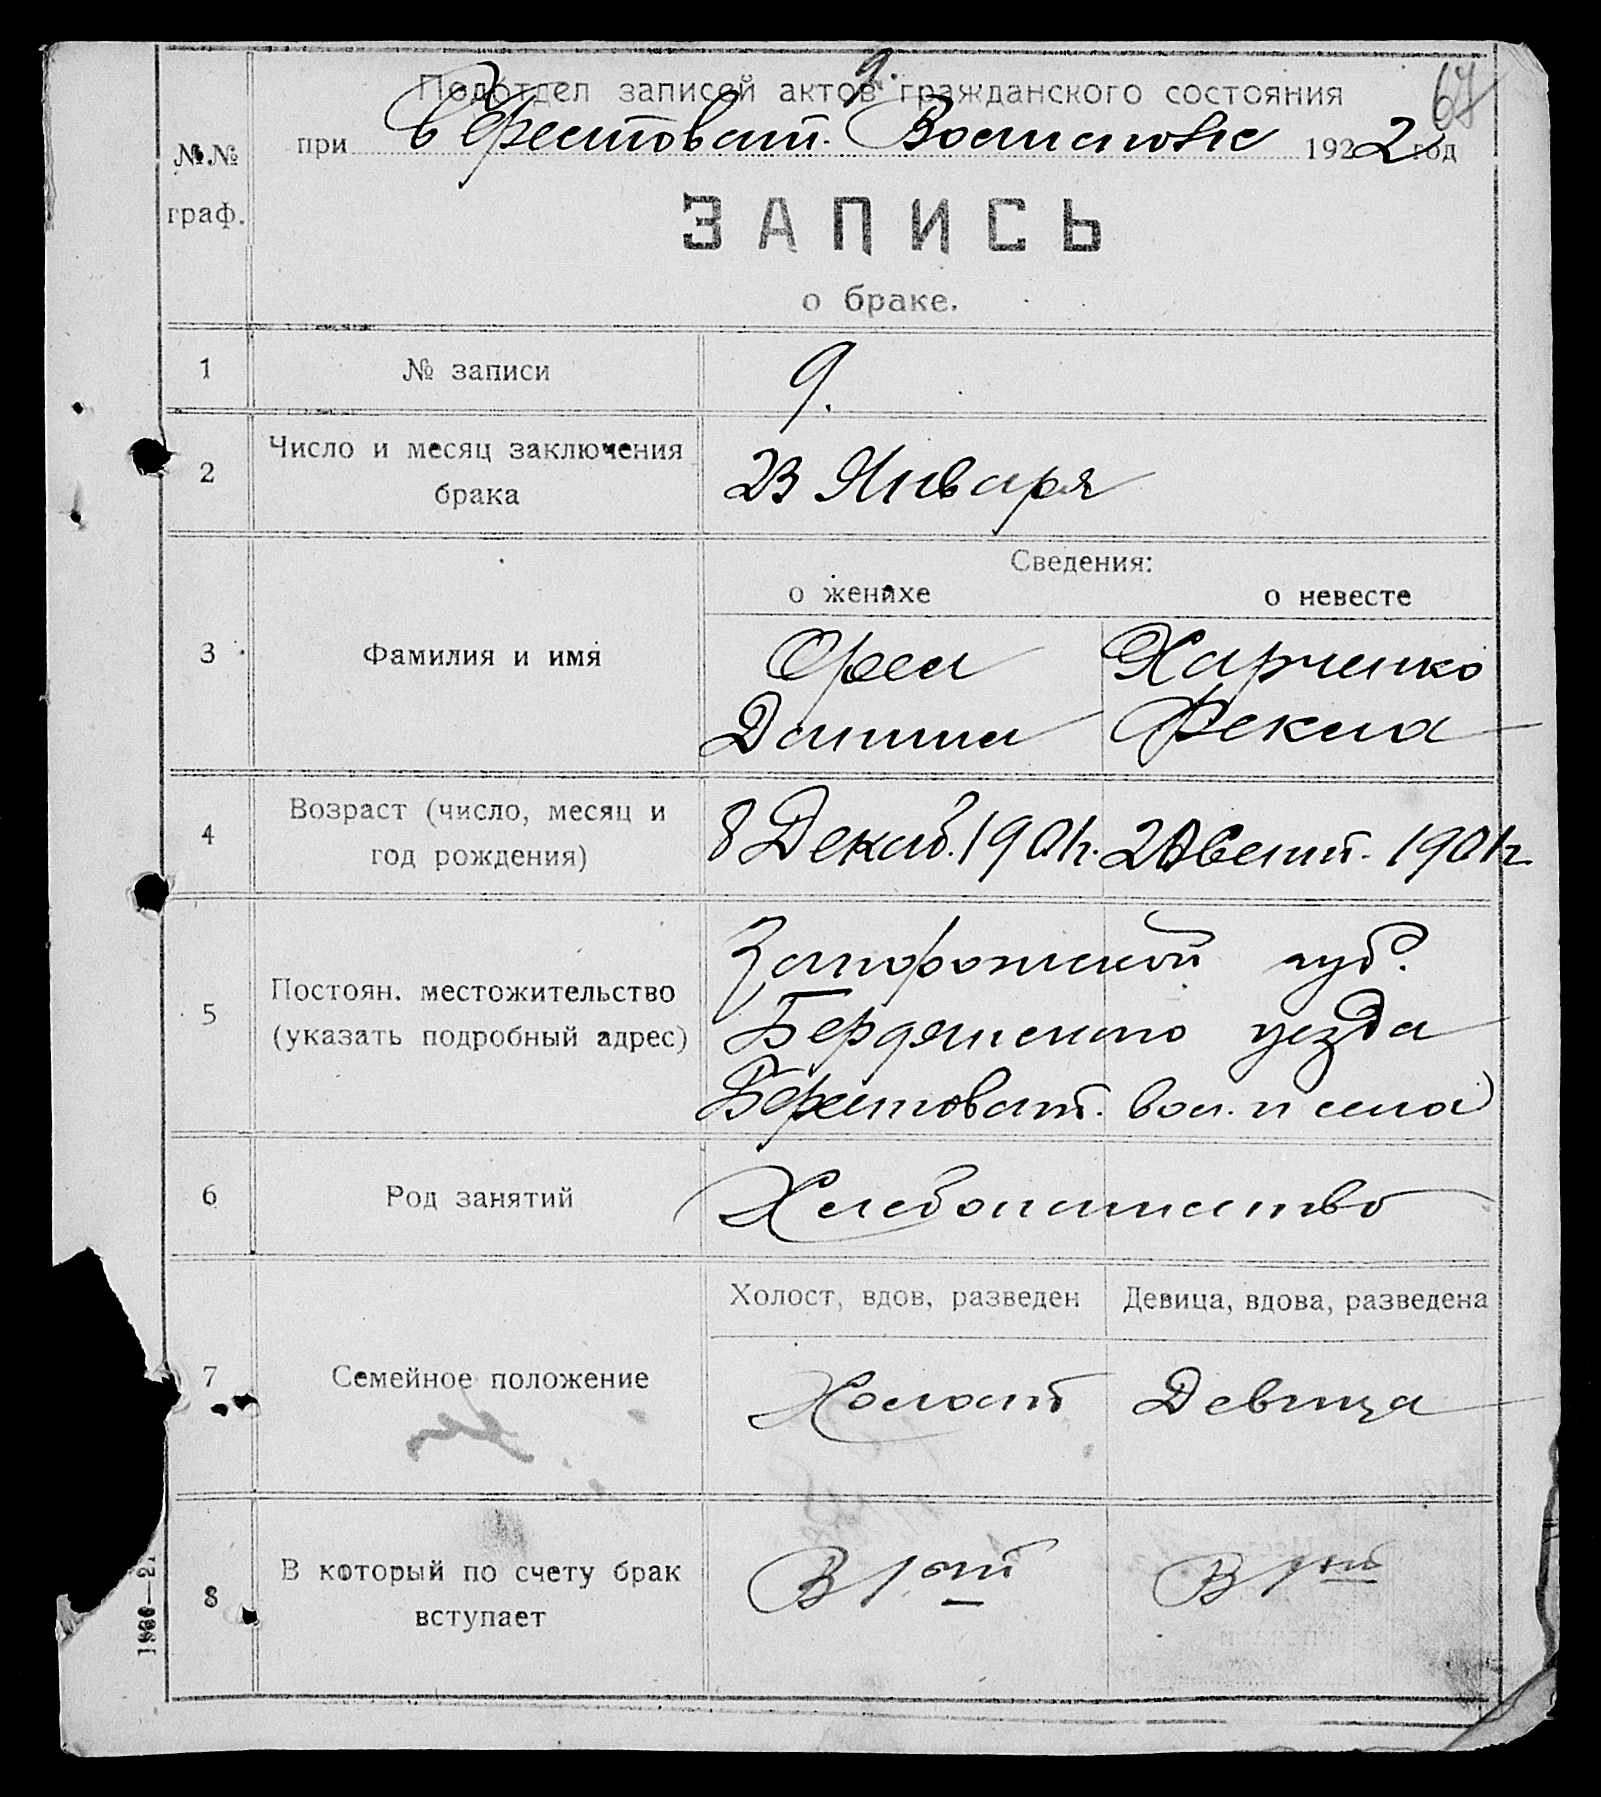 9.
67
Подотдел записей актов гражданского состояния
при Берестоват. 1922 год
№.№ граф.
ЗАПИСЬ
о браке.
1 № записи 9.
2 Число и месяц заключения
брака 23 Января
Сведения:
о женихе о невесте
3 Фамилия и имя Орел Харченко
Данил Фекла
4 Возраст (число, месяц и
год рождения) 8 Декаб. 1901г. 1901г.
5 Постоян. местожительство
(указать подробный адрес)
Запорожской губ.
Бердянского уезда
Берестоват. вол. и села
6 Род занятий Хлебопашество
Холост, вдов, разведен Девица, вдова, разведена
7 Семейное положение Холост Девица
8 В который по счету брак
вступает В 1ый В 1ый